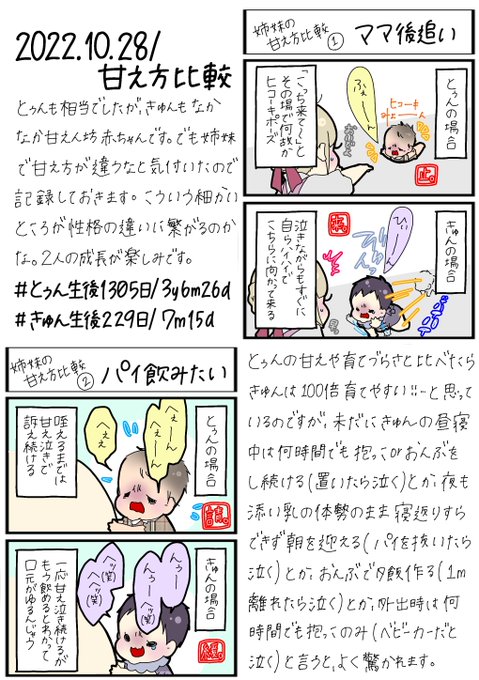 2022.10.28/
甘え方比較
とぅんも相当でしたが、きゅんもなか
なか甘えん坊赤ちゃんです。でも姉妹
で甘え方が違うなと気付いたので
記録しておきます。こういう細かい
ところが性格の違いに繋がるのか
な。2人の成長が楽しみです。
#とぅん生後1305日/3y6m26d
#きゅん生後229日/7m15d
姉妹の
甘え方比較①
ママ後追い
とぅんの場合
ヒコーキ
みょーーん
ふぇーーん
「こっち来て〜」と
その場で何故か
ヒコーキポーズ
止。
きゅんの場合
ひぃーーん
泣きながらもすぐに
自らハイハイで
こちらに向かって来る
姉妹の
甘え方比較②
パイ飲みたい
とぅんの場合
へぇーん
へぇーん
へぇぇ
咥えるまでは
甘え泣きで
訴え続ける
請。
きゅんの場合
んぅーー
んぅーー
へッ(笑)
へへッ(笑)
一応甘え泣き続けるが
もう飲めるとわかって
口元がゆるんじゃう
とぅんの甘えや育てづらさと比べたら
きゅんは100倍育てやすい!!ーと思って
いるのですが、未だにきゅんの昼寝
中は何時間でも抱っこorおんぶを
し続ける(置いたら泣く)とか、夜も
添い乳の体勢のまま寝返りすら
できず朝を迎える(パイを抜いたら
泣く)とか、おんぶで夕飯作る(1m
離れたら泣く)とか、外出時は何
時間でも抱っこのみ(ベビーカーだと
泣く)と言うと、よく驚かれます。